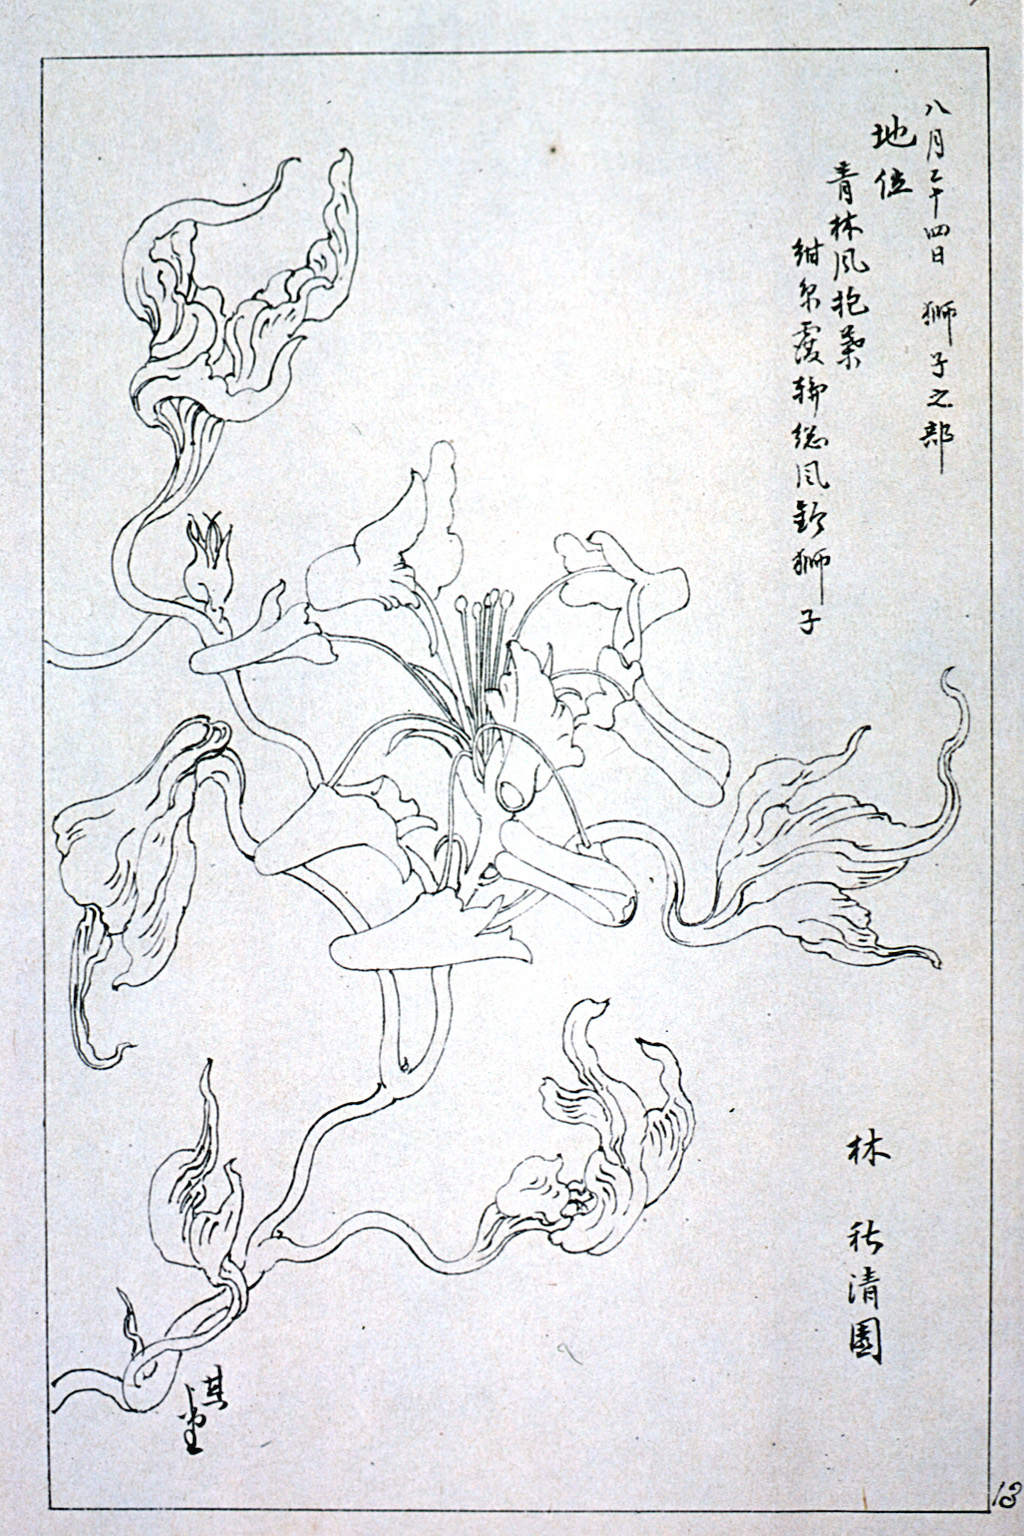 八月二十四日 獅子之部
地位
青林風抱葉
紺糸覆輪総風鈴獅子
林 秋清園
其堂
13